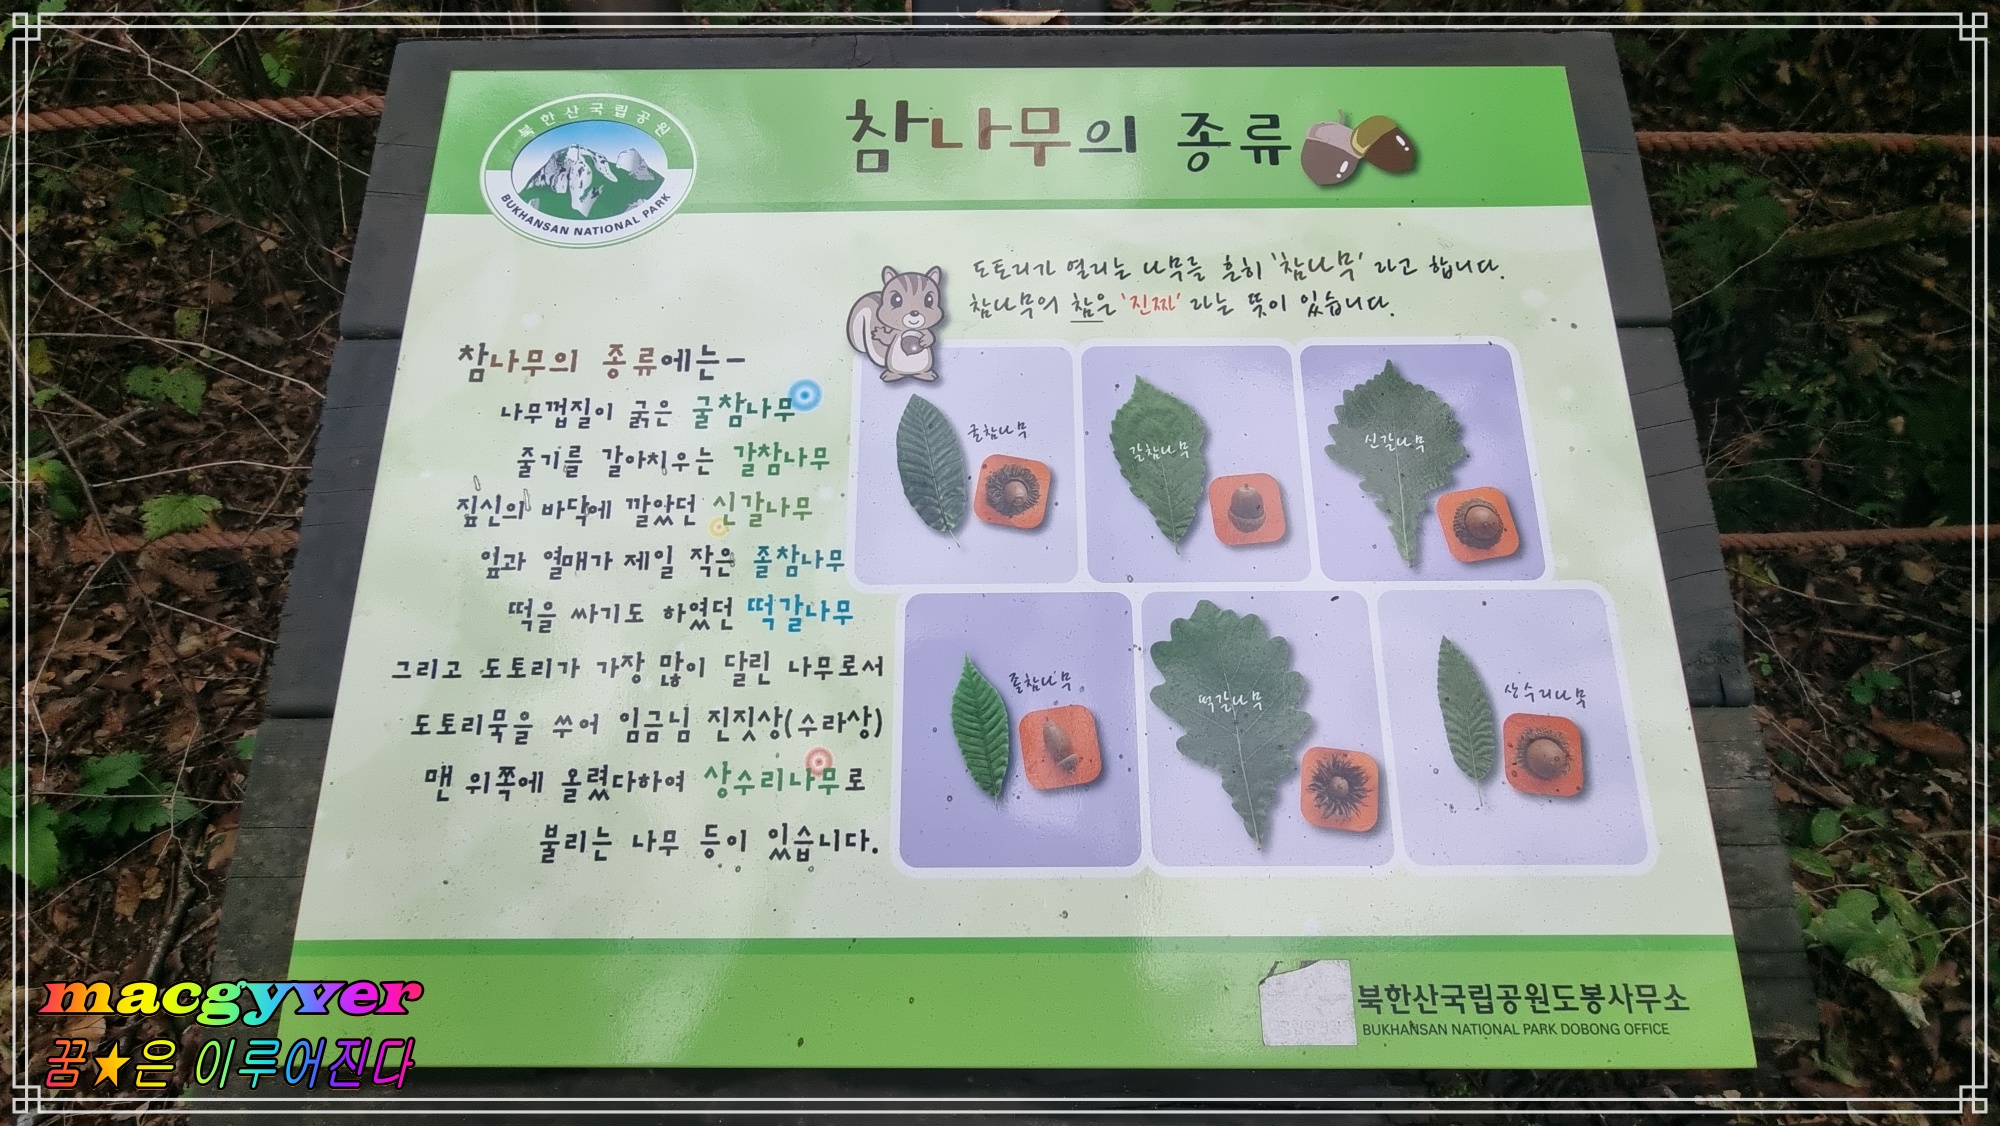 북한산국립공원
BUKHANSAN NATIONAL PARK
참나무의 종류
도토리가 열리는 나무를 흔히 '참나무' 라고 합니다.
참나무의 참은 '진짜' 라는 뜻이 있습니다.
참나무의 종류에는-
나무껍질이 굵은 굴참나무
줄기를 갈아치우는 갈참나무
짚신의 바닥에 깔았던 신갈나무
잎과 열매가 제일 작은 졸참나무
떡을 싸기도 하였던 떡갈나무
그리고 도토리가 가장 많이 달린 나무로서
도토리묵을 쑤어 임금님 진짓상(수라상)
맨 위쪽에 올렸다하여 상수리나무로
불리는 나무 등이 있습니다.
굴참나무
갈참나무
신갈나무
졸참나무
떡갈나무
상수리나무
북한산국립공원도봉사무소
BUKHANSAN NATIONAL PARK DOBONG OFFICE
macgyver
꿈★은 이루어진다